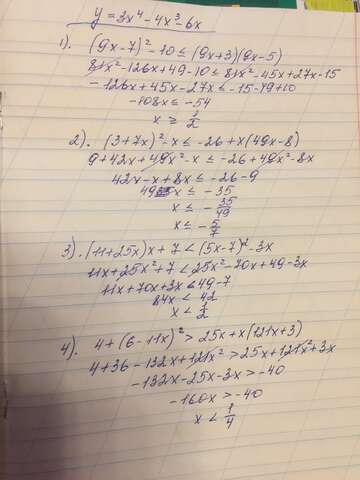 y = 3x⁴ - 4x³ - 6x
1). (9x-7)² - 10 ≤ (9x+3)(9x-5)
81x² - 126x + 49 - 10 ≤ 81x² - 45x + 27x - 15
- 126x + 45x - 27x ≤ -15 - 49 + 10
- 108x ≤ - 54
x ≥ 1/2
2). (3+7x)² - x ≤ -26 + x(49x-8)
9 + 42x + 49x² - x ≤ -26 + 49x² - 8x
42x - x + 8x ≤ -26 - 9
49x ≤ - 35
x ≤ - 35/49
x ≤ - 5/7
3). (11+25x)x + 7 < (5x-7)² - 3x
11x + 25x² + 7 < 25x² - 70x + 49 - 3x
11x + 70x + 3x < 49 - 7
84x < 42
x < 1/2
4). 4 + (6-11x)² > 25x + x(121x+3)
4 + 36 - 132x + 121x² > 25x + 121x² + 3x
- 132x - 25x - 3x > -40
- 160x > -40
x < 1/4